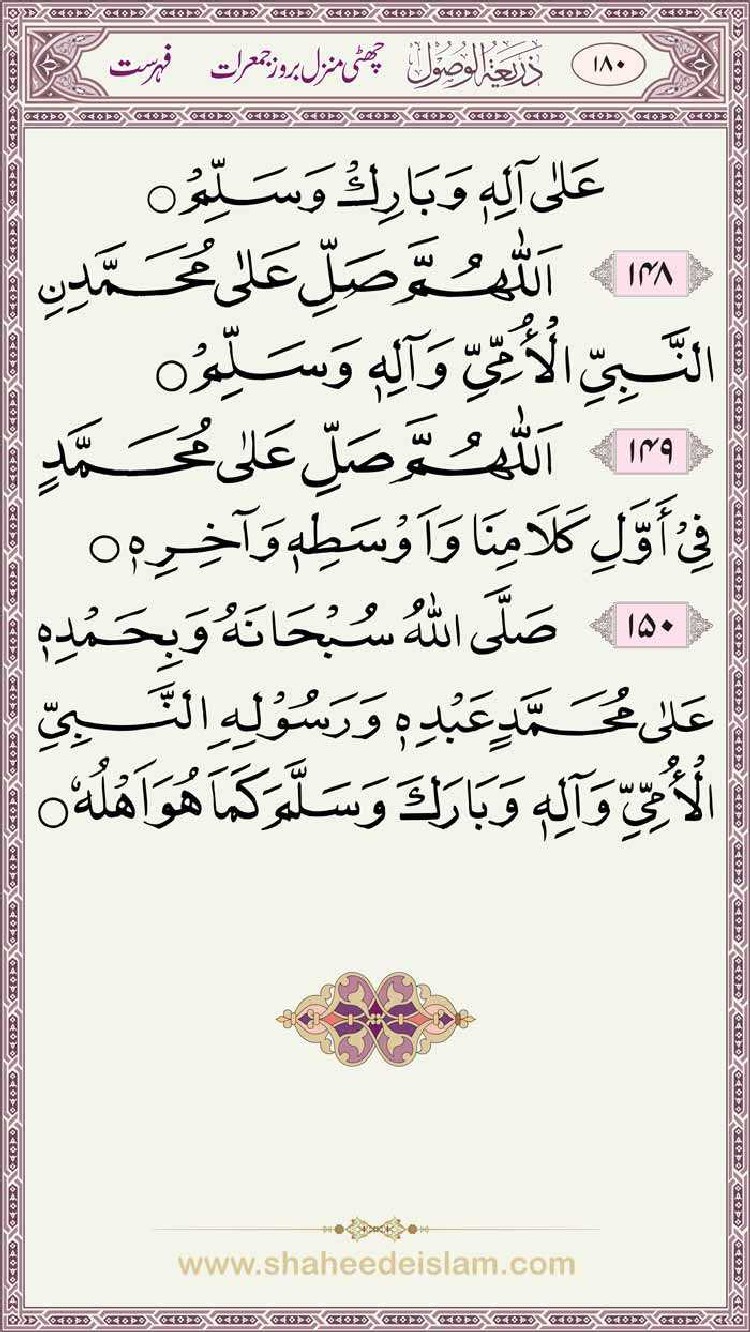 ۱۸۰ ذَرِیعَةُ الْوُصُوْل چھٹی منزل بروز جمعرات فہرست
عَلٰى آلِهٖ وَبَارِكْ وَسَلِّمْ○
۱۴۸ اَللّٰهُمَّ صَلِّ عَلٰى مُحَمَّدِنِ
النَّبِيِّ الْأُمِّيِّ وَآلِهٖ وَسَلِّمْ○
۱۴۹ اَللّٰهُمَّ صَلِّ عَلٰى مُحَمَّدٍ
فِيْ أَوَّلِ كَلَامِنَا وَاَوْسَطِهٖ وَآخِرِهٖ○
۱۵۰ صَلَّى اللهُ سُبْحَانَهُ وَبِحَمْدِهٖ
عَلٰى مُحَمَّدٍ عَبْدِهٖ وَرَسُوْلِهِ النَّبِيِّ
الْأُمِّيِّ وَآلِهٖ وَبَارَكَ وَسَلَّمَ كَمَا هُوَ اَهْلُهٗ○
www.shaheedeislam.com